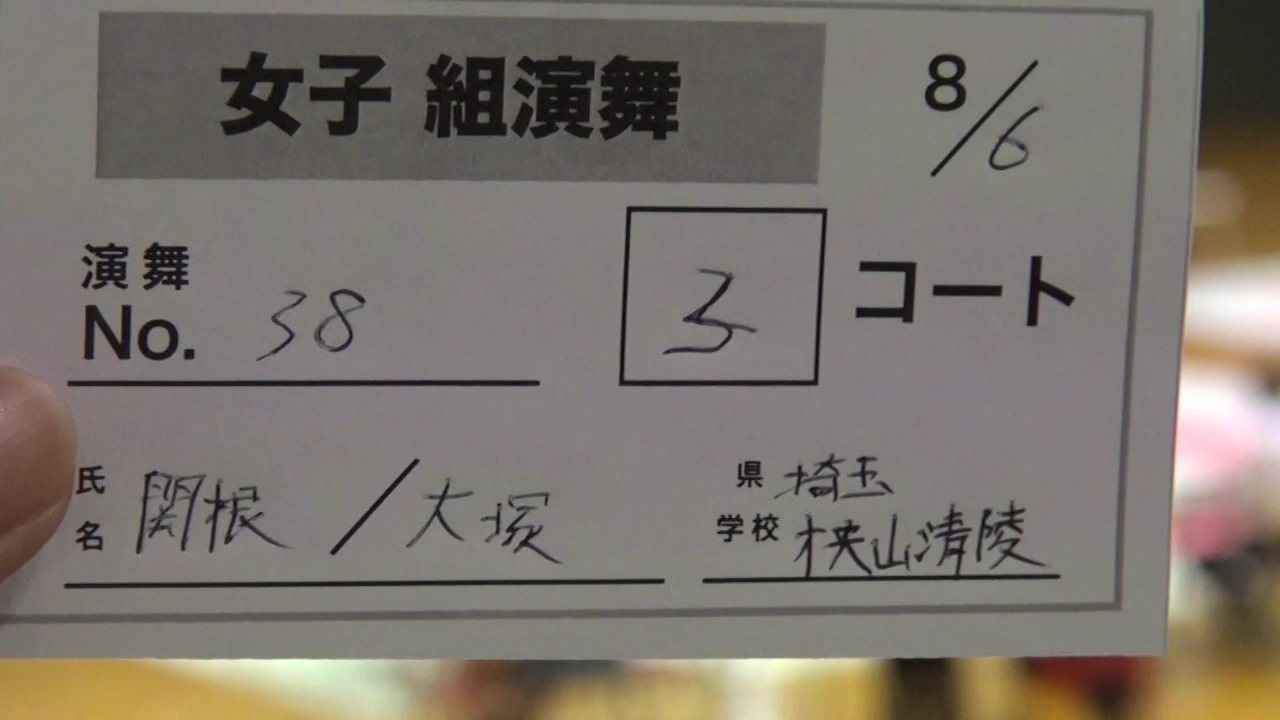 女子 組演舞 8/6
演舞
No. 38 3 コート
氏名 関根 / 大塚
県 埼玉
学校 狭山清陵